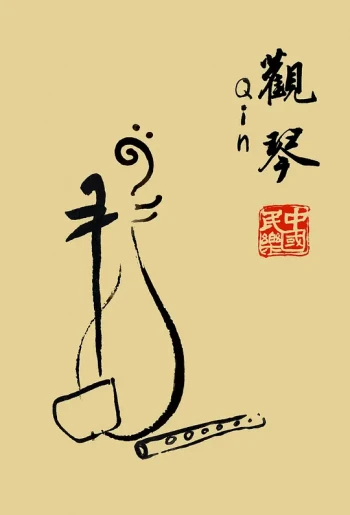 觀琴
Qin
中國
民樂